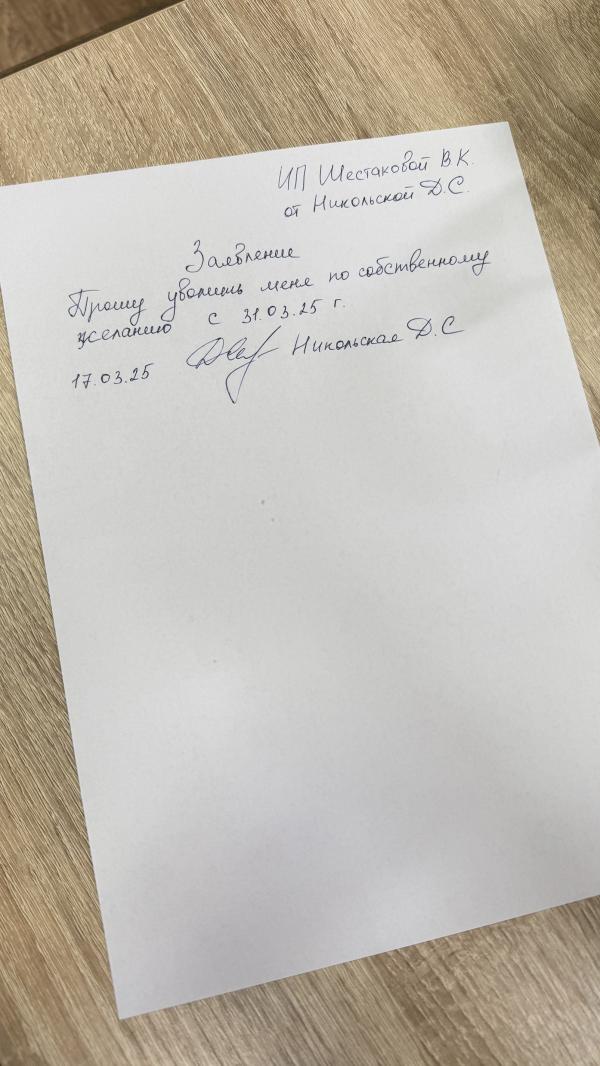 ИП Шестаковой В.К.
от Никольской Д.С.
Заявление
Прошу уволить меня по собственному
желанию с 31.03.25 г.
17.03.25 Никольская Д.С